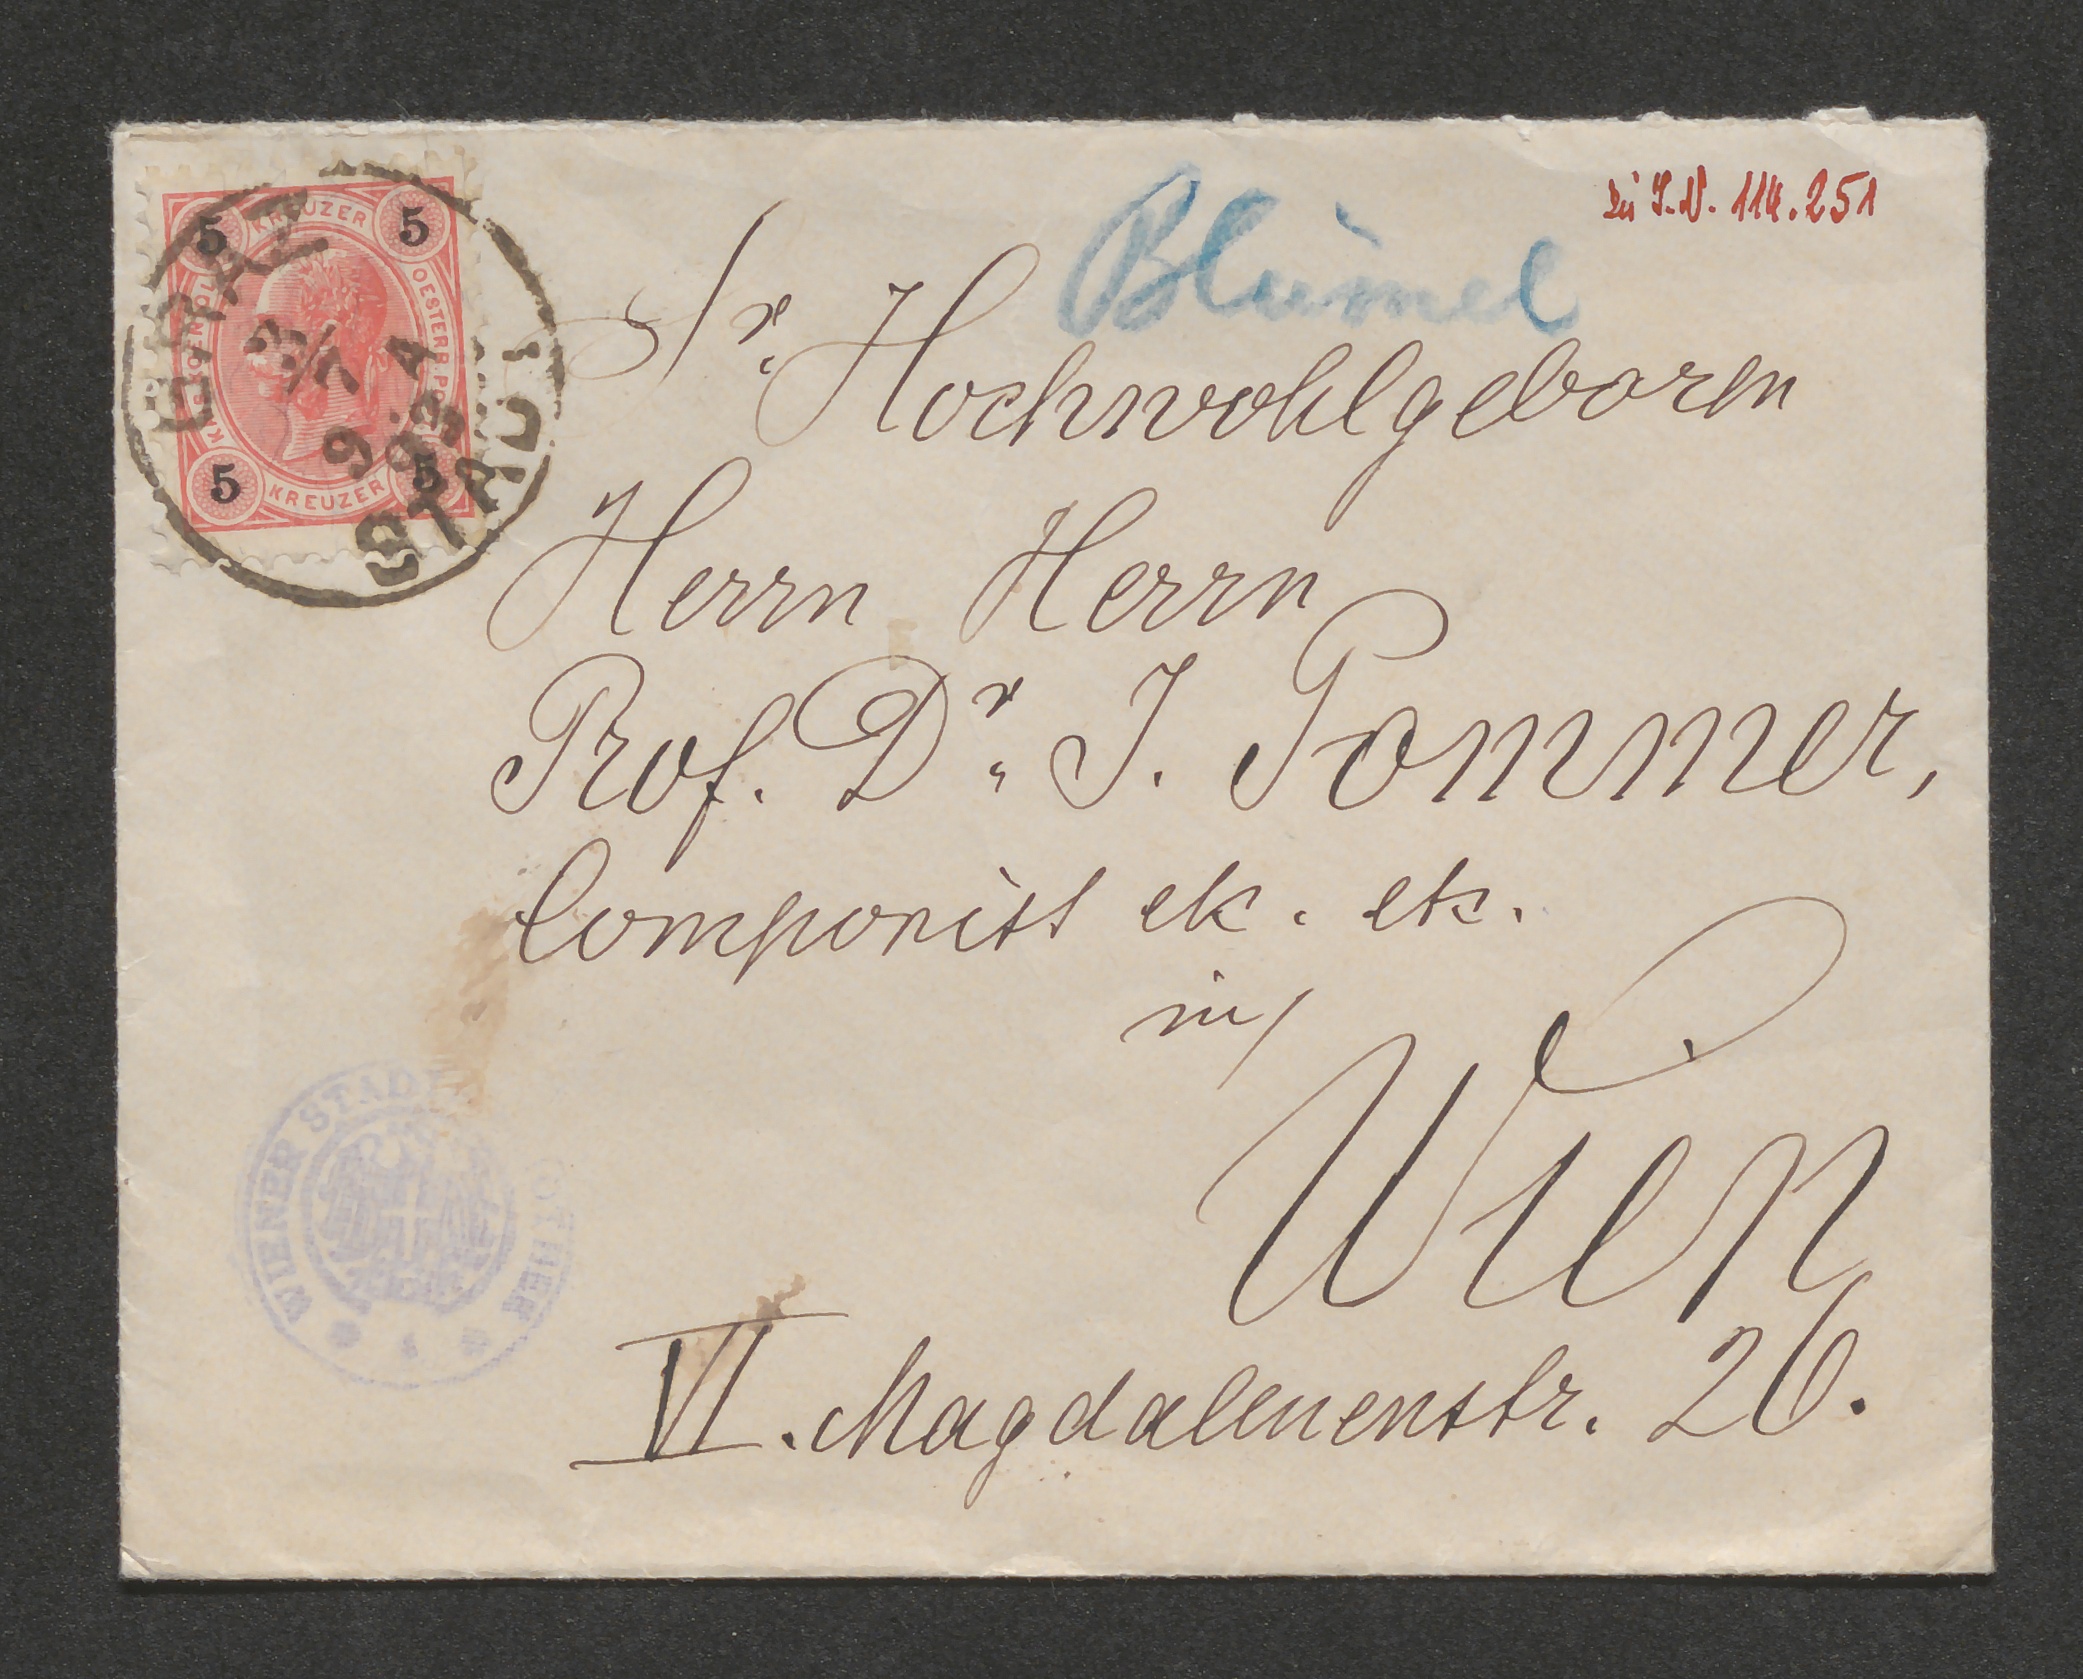 5 KREUZER 5
OESTERR. PO
5 KREUZER 5
GRAZ
3/7
9 A
93
STADT
Blümel
zu I.N. 114.251
Sr. Hochwohlgeboren
Herrn Herrn
Prof. Dr. J. Pommer,
Componist etc. etc.
in
Wien
VI. Magdalenenstr. 26.
WIENER STADT